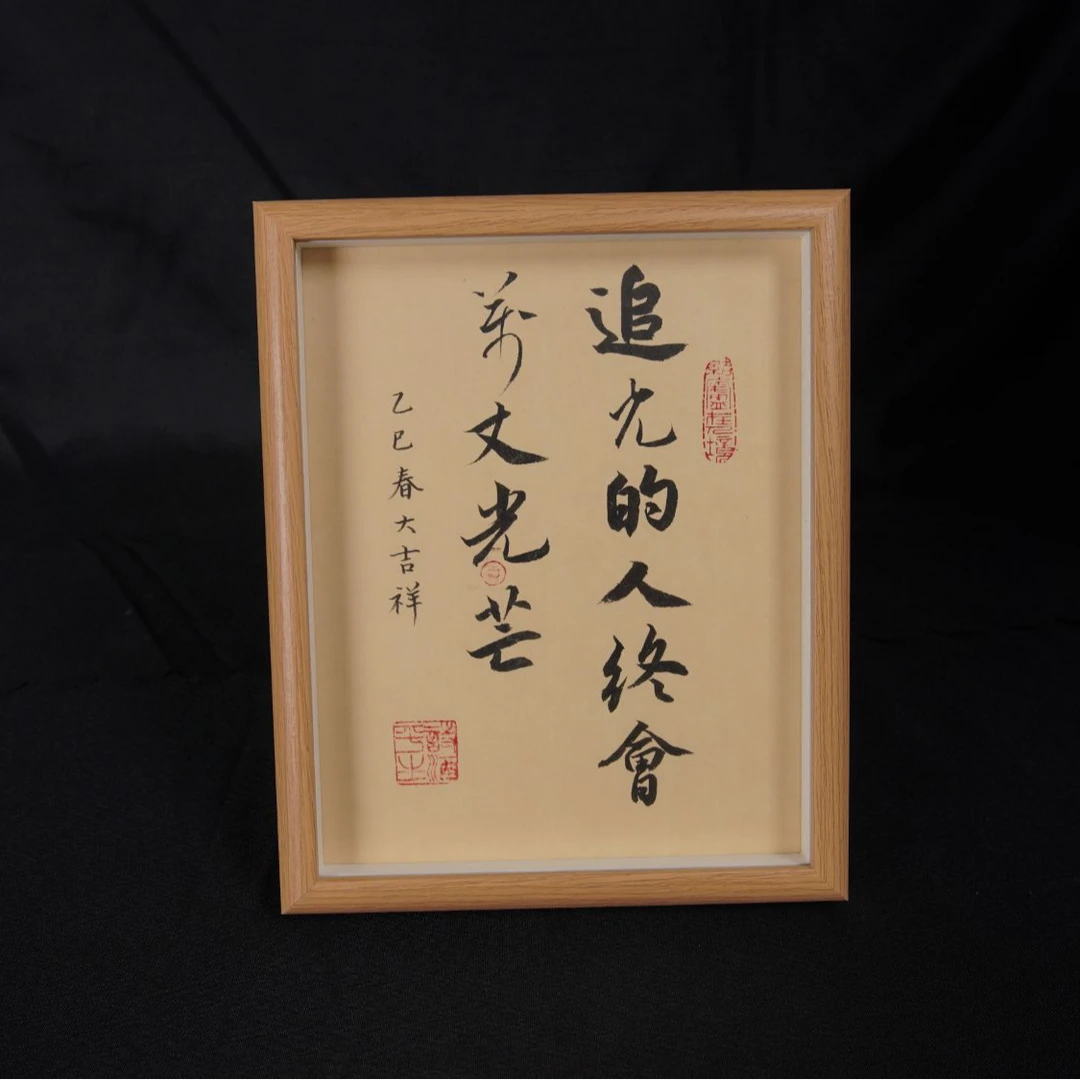 追光的人終會
萬丈光芒
乙巳春大吉祥